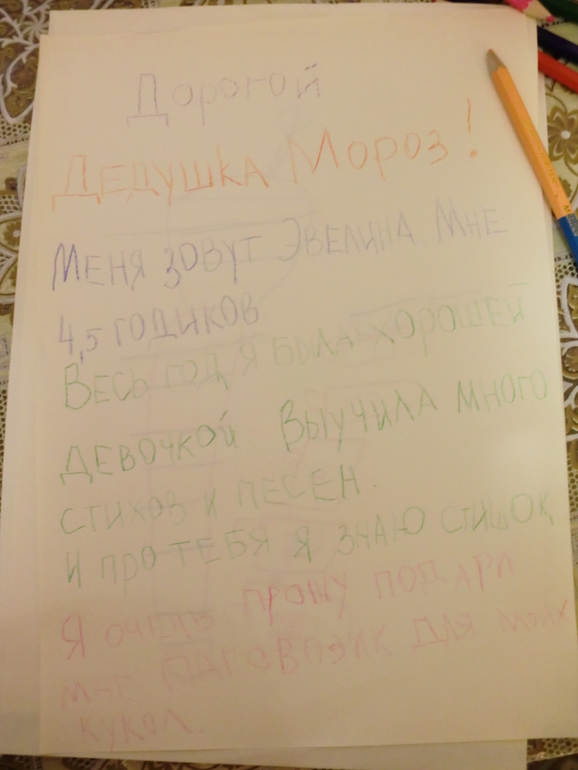 Дорогой
Дедушка Мороз!
Меня зовут Эвелина. Мне
4,5 годиков
Весь год я была хорошей
девочкой Выучила много
стихов и песен.
И про тебя я знаю стишок
Я очень прошу подари
мне паговозик для моих
кукол.